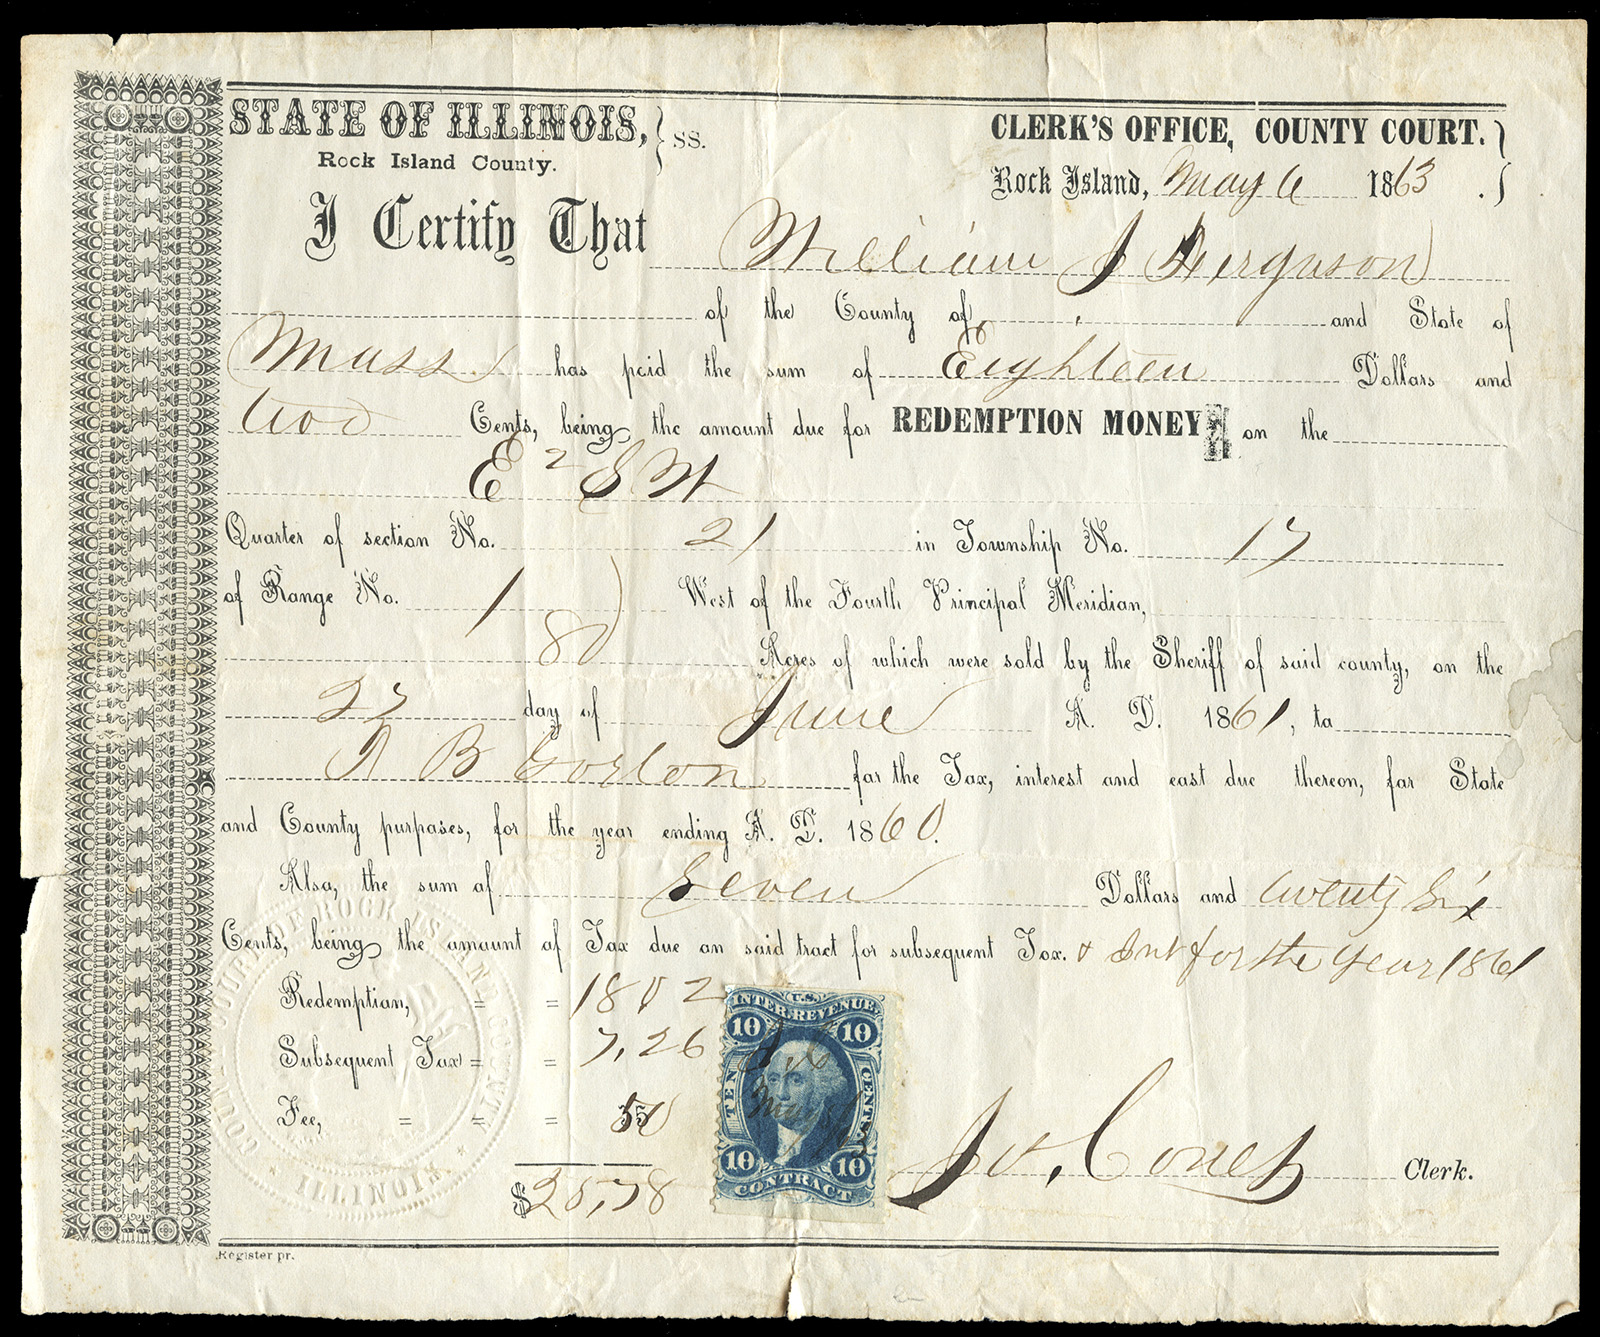 STATE OF ILLINOIS, } SS.
Rock Island County.
CLERK'S OFFICE, COUNTY COURT. }
Rock Island, May 6 1863 . }
I Certify That William J Ferguson
of the County of and State of
Mass has paid the sum of Eighteen Dollars and
two Cents, being the amount due for REDEMPTION MONEY on the
E 2 S W
Quarter of section No. 21 in Township No. 17
of Range No. 1 West of the Fourth Principal Meridian,
80 Acres of which were sold by the Sheriff of said county, on the
27 day of June A. D. 1861, to
B Gorton for the Tax, interest and cost due thereon, for State
and County purposes, for the year ending A. D. 1860.
Also, the sum of Seven Dollars and twenty Six
Cents, being the amount of Tax due on said tract for subsequent Tax. & Int for the Year 1861
Redemption, = = 18 02
Subsequent Tax = = 7,26
Fee, = = = 50
$25,78
U.S.
INTER. REVENUE.
10 10
TEN CENTS
10 10
CONTRACT
Clerk.
COUNTY COURT OF ROCK ISLAND COUNTY
ILLINOIS
Register pr.